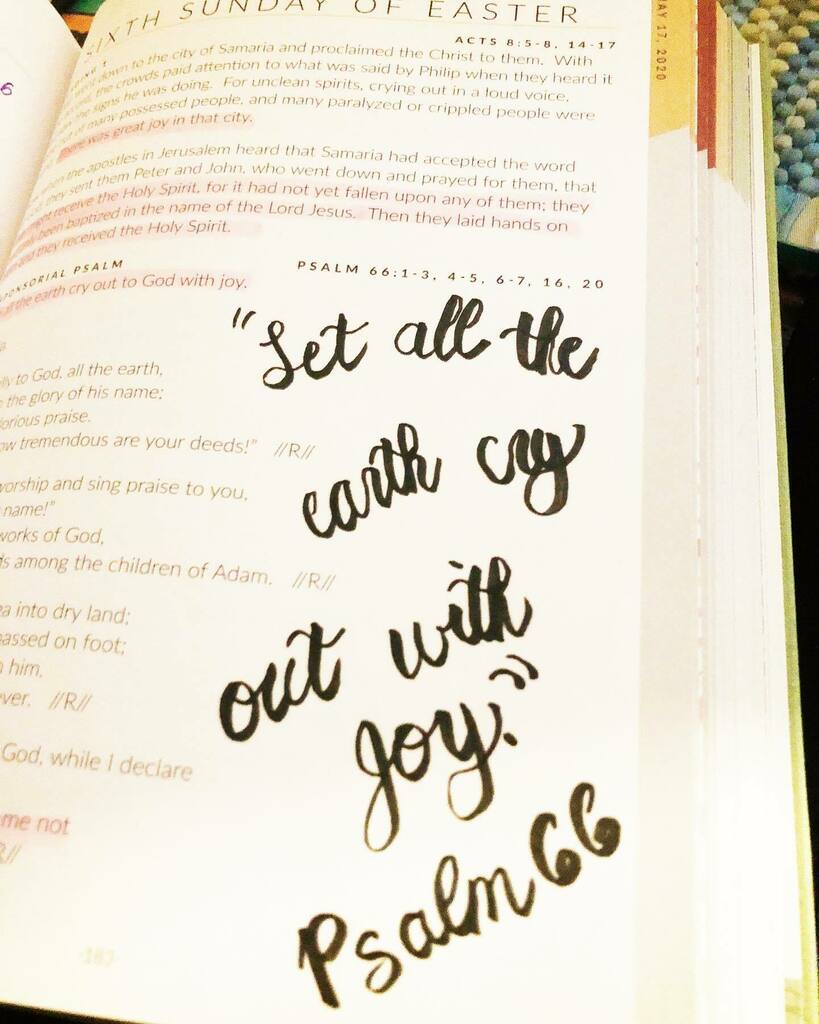 SIXTH SUNDAY OF EASTER
ACTS 8:5-8, 14-17
down to the city of Samaria and proclaimed the Christ to them. With
the crowds paid attention to what was said by Philip when they heard it
the signs he was doing. For unclean spirits, crying out in a loud voice,
of many possessed people, and many paralyzed or crippled people were
There was great joy in that city.
the apostles in Jerusalem heard that Samaria had accepted the word
they sent them Peter and John, who went down and prayed for them, that
might receive the Holy Spirit, for it had not yet fallen upon any of them; they
been baptized in the name of the Lord Jesus. Then they laid hands on
they received the Holy Spirit.
ONSORIAL PSALM
PSALM 66:1-3, 4-5, 6-7, 16, 20
all the earth cry out to God with joy.
"Let all the
earth cry
out with
Joy."
Psalm 66
to God, all the earth,
the glory of his name;
glorious praise.
tremendous are your deeds!" //R//
worship and sing praise to you,
name!"
works of God,
among the children of Adam. //R//
into dry land;
passed on foot;
him.
ver. //R//
God, while I declare
me not
R//
187
MAY 17, 2020
6